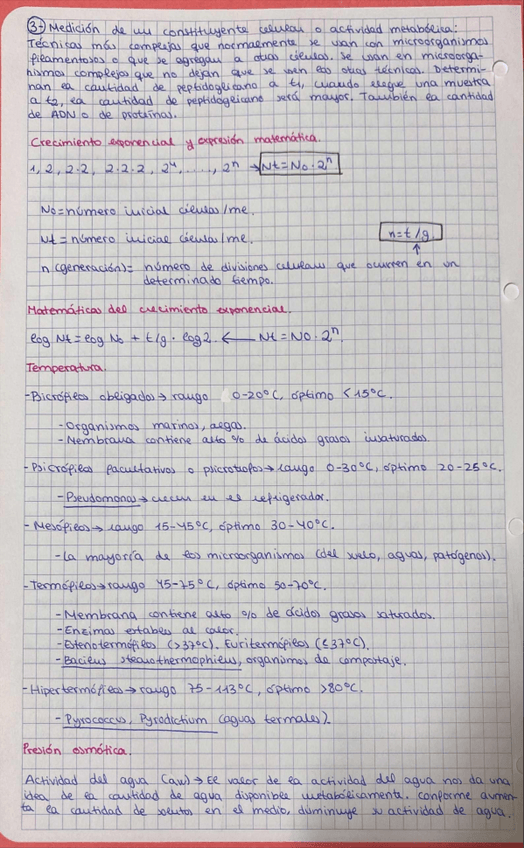 3-) Medición de un constituyente celular o actividad metabólica:
Técnicas más complejas que normalmente se usan con microorganismos
filamentosos o que se agregan a otras células. Se usan en microorga-
nismos complejos que no dejan que se usen las otras técnicas. Determi-
nan la cantidad de peptidoglicano a t1, cuando llegue una muestra
a t2, la cantidad de peptidoglicano será mayor. También la cantidad
de ADN o de proteínas.
Crecimiento exponencial y expresión matemática.
1, 2, 2·2, 2·2·2, 2⁴, ....., 2ⁿ → Nt = No · 2ⁿ
No = número inicial células/ml.
Nt = número inicial células/ml.
n = t/g
n (generación) = número de divisiones celulares que ocurren en un
determinado tiempo.
Matemáticas del crecimiento exponencial.
log Nt = log No + t/g · log 2. ← Nt = NO · 2ⁿ.
Temperatura.
- Psicrófilos obligados → rango 0-20°C, óptimo <15°C.
- Organismos marinos, algas.
- Membrana contiene alto % de ácidos grasos insaturados.
- Psicrófilos facultativos o psicrótrofos → rango 0-30°C, óptimo 20-25°C.
- Pseudomonas → crecen en el refrigerador.
- Mesófilos → rango 15-45°C, óptimo 30-40°C.
- La mayoría de los microorganismos (del suelo, aguas, patógenos).
- Termófilos → rango 45-75°C, óptimo 50-70°C.
- Membrana contiene alto % de ácidos grasos saturados.
- Enzimas estables al calor.
- Estenotermófilos (>37°C). Euritermófilos (≤37°C).
- Bacillus stearothermophilus, organismos de compostaje.
- Hipertermófilos → rango 75-113°C, óptimo >80°C.
- Pyrococcus, Pyrodictium (aguas termales).
Presión osmótica.
Actividad del agua (aw) → El valor de la actividad del agua nos da una
idea de la cantidad de agua disponible metabólicamente. Conforme aumen-
ta la cantidad de solutos en el medio, disminuye su actividad de agua.